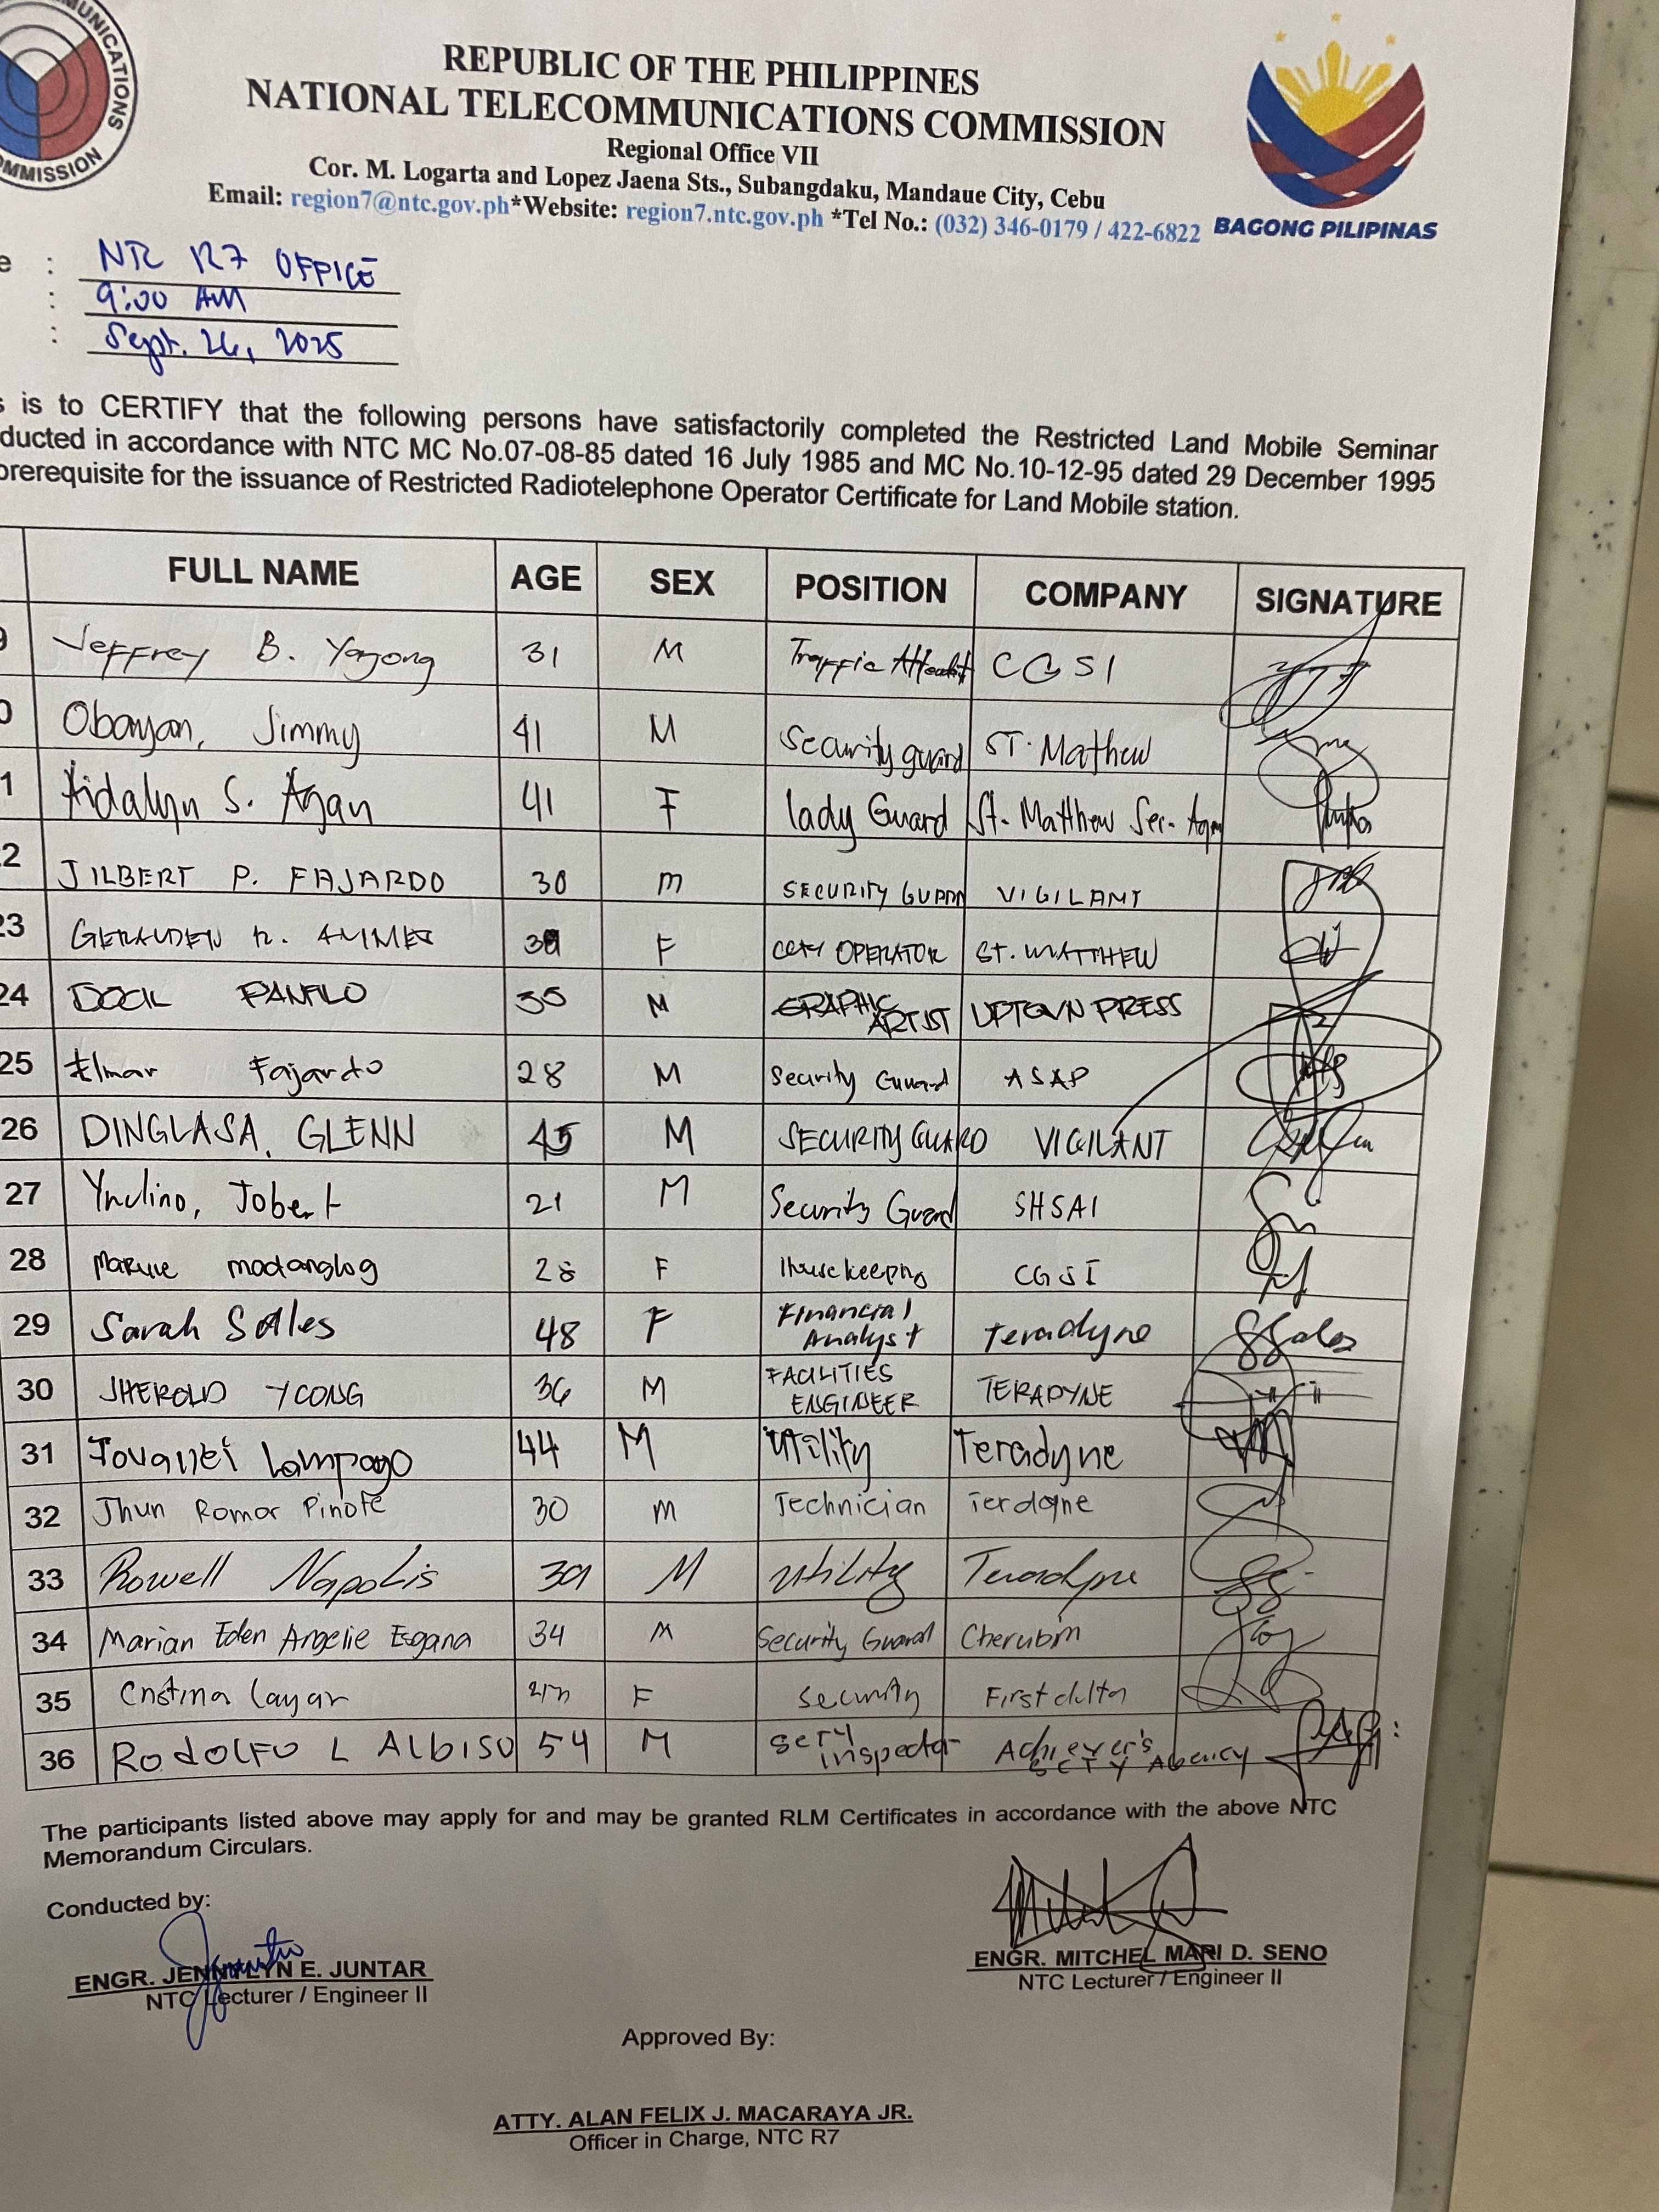 MUNICATIONS
OMMISSION
REPUBLIC OF THE PHILIPPINES
NATIONAL TELECOMMUNICATIONS COMMISSION
Regional Office VII
Cor. M. Logarta and Lopez Jaena Sts., Subangdaku, Mandaue City, Cebu
Email: region7@ntc.gov.ph*Website: region7.ntc.gov.ph *Tel No.: (032) 346-0179 / 422-6822
BAGONG PILIPINAS
e : R7 OFFICE
: 9:00 AM
: Sept. 26, 2025
s is to CERTIFY that the following persons have satisfactorily completed the Restricted Land Mobile Seminar
ducted in accordance with NTC MC No.07-08-85 dated 16 July 1985 and MC No.10-12-95 dated 29 December 1995
prerequisite for the issuance of Restricted Radiotelephone Operator Certificate for Land Mobile station.
FULL NAME AGE SEX POSITION COMPANY SIGNATURE
9 Jeffrey B. Yagong 31 M Traffic CGSI
0 Obayan, Jimmy 41 M Security guard ST. Mathew
1 Aidalyn S. Agan 41 F lady Guard St. Matthew Sec.
2 JILBERT P. FAJARDO 30 m SECURITY GUARD VIGILANT
23 F OPERATOR ST. MATTHEW
24 PANFILO 35 M GRAPHIC ARTIST UPTOWN PRESS
25 Elmar Fajardo 28 M Security Guard ASAP
26 DINGLASA, GLENN 45 M SECURITY GUARD VIGILANT
27 Jobert 21 M Security Guard SHSAI
28 madanglog 28 F Housekeeping CGSI
29 Sarah Salles 48 F Financial Analyst Teradyne
30 JHEROLD YCONG 36 M FACILITIES ENGINEER TERADYNE
31 Lampago 44 M Utility Teradyne
32 Jhun Romar Pinote 30 m Technician Terdayne
33 Rowell Napolis 39 M Utility Teradyne
34 Marian Eden Angelie Esgana 34 M Security Guard Cherubim
35 Cristina Layar F Security First delta
36 RODOLFO L ALBISO 54 M inspector Achiever's SCTY Agency
The participants listed above may apply for and may be granted RLM Certificates in accordance with the above NTC
Memorandum Circulars.
Conducted by:
ENGR. JENNALYN E. JUNTAR
NTC Lecturer / Engineer II
ENGR. MITCHEL MARI D. SENO
NTC Lecturer / Engineer II
Approved By:
ATTY. ALAN FELIX J. MACARAYA JR.
Officer in Charge, NTC R7